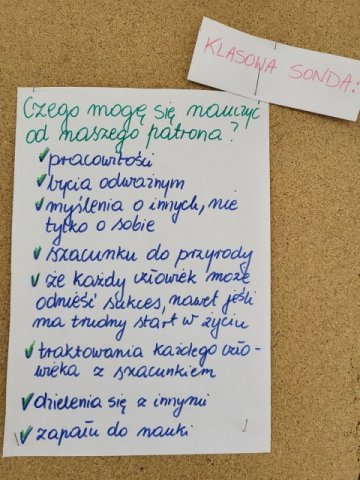 KLASOWA SONDA:
Czego mogę się nauczyć
od naszego patrona?
pracowitości
bycia odważnym
myślenia o innych, nie
tylko o sobie
szacunku do przyrody
że każdy człowiek może
odnieść sukces, nawet jeśli
ma trudny start w życiu
traktowania każdego czło-
wieka z szacunkiem
dzielenia się z innymi
zapału do nauki